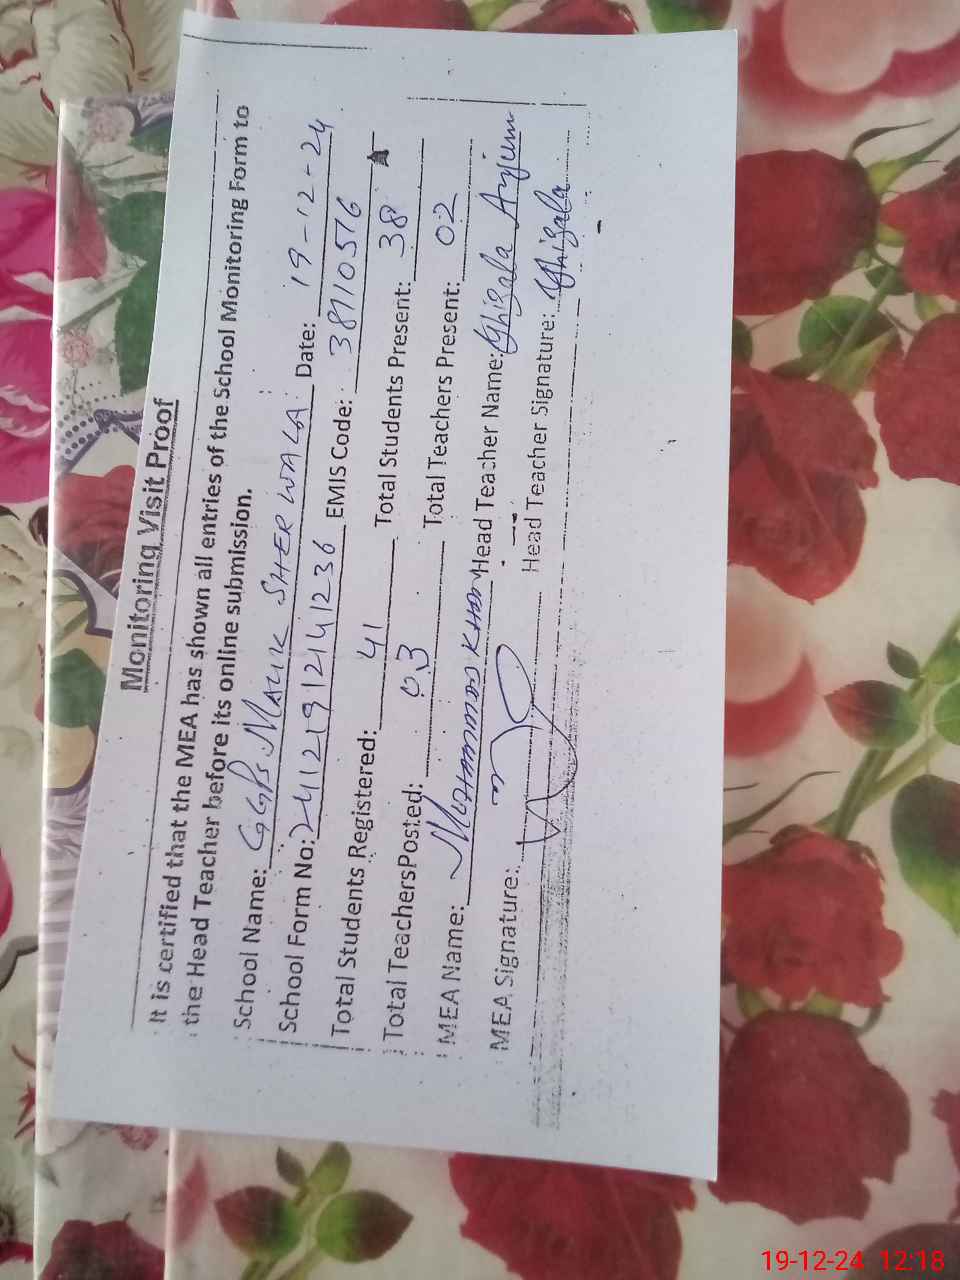 Monitoring Visit Proof
It is certified that the MEA has shown all entries of the School Monitoring Form to
the Head Teacher before its online submission.
School Name: GGPS MALIK SHER WALA Date: 19-12-24
School Form No: 2411219121241236 EMIS Code: 38110576
Total Students Registered: 41 Total Students Present: 38
Total TeachersPosted: 03 Total Teachers Present: 02
MEA Name: MUHAMMAD Head Teacher Name: Ghizala Anjum
MEA Signature: Head Teacher Signature: Ghizala
19-12-24 12:18